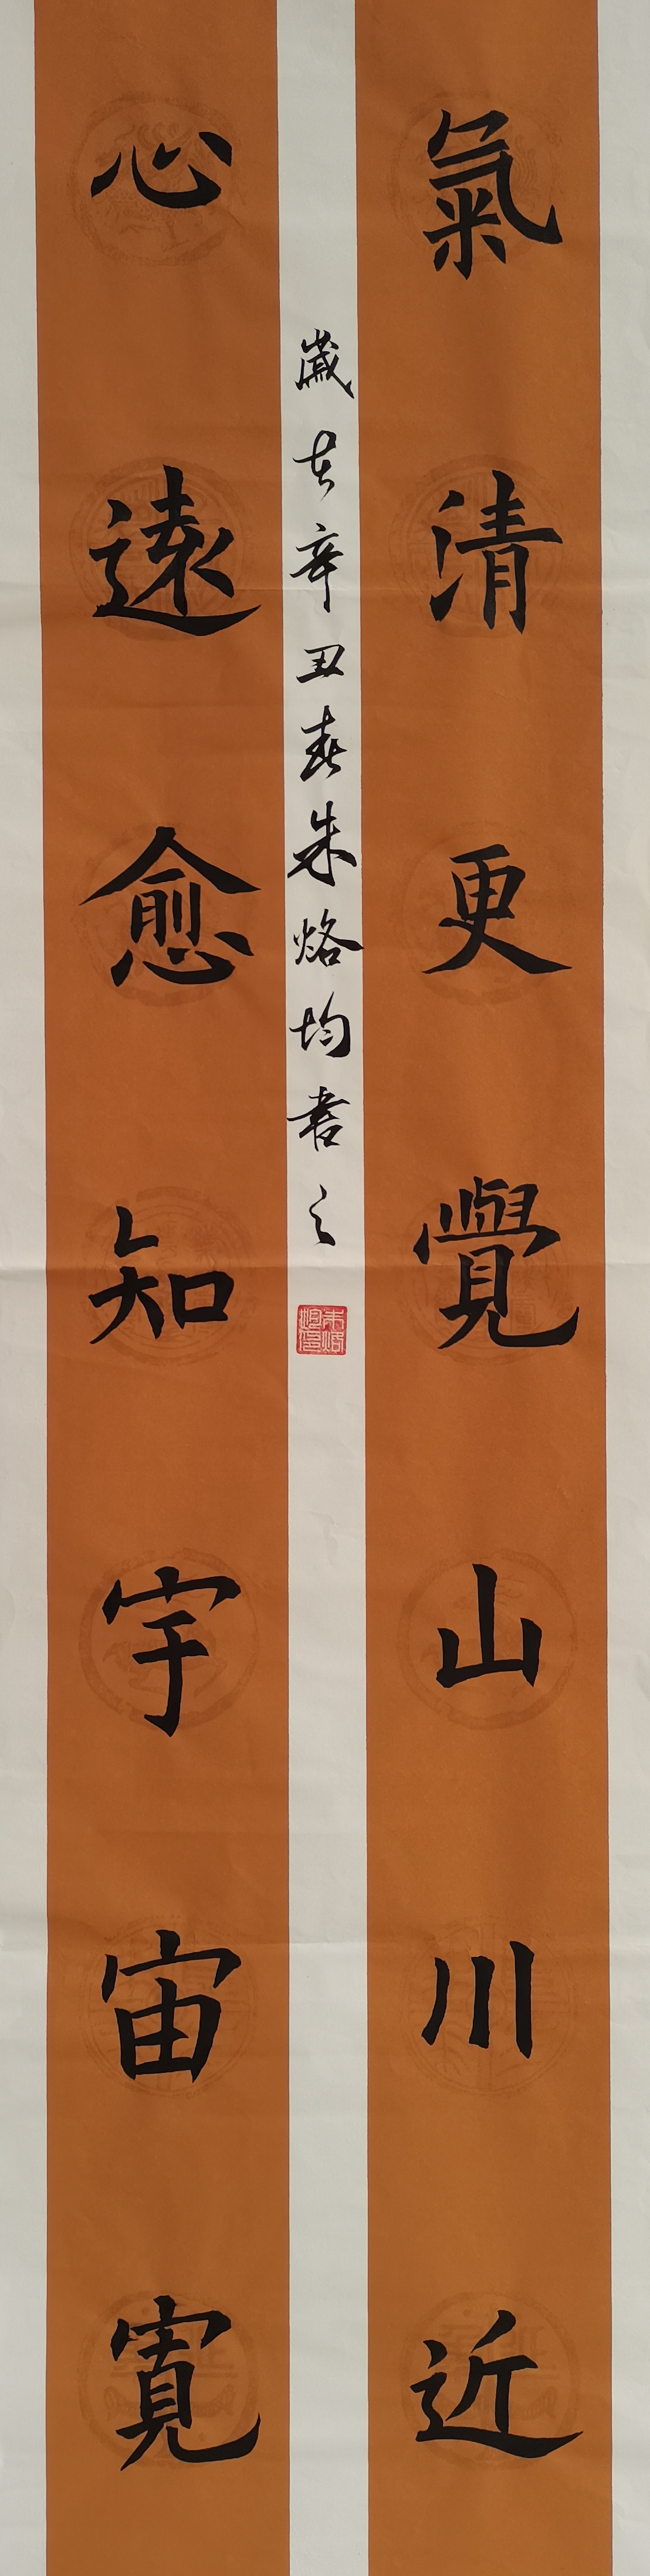 氣清更覺山川近
心遠愈知宇宙寬
歲在辛丑春朱烙均書之